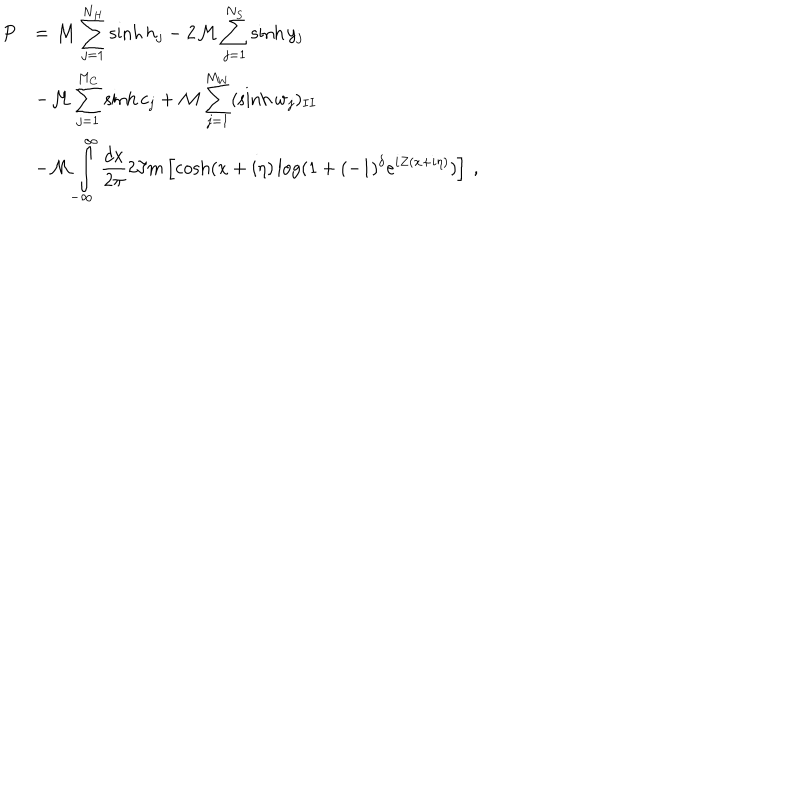 P = \mathcal{M} \sum_{j=1}^{N_H} \sinh h_j - 2 \mathcal{M} \sum_{j=1}^{N_S} \sinh y_j
- \mathcal{M} \sum_{j=1}^{M_C} \sinh c_j + \mathcal{M} \sum_{j=1}^{M_W} (\sinh w_j)_{II}
- \mathcal{M} \int\limits_{-\infty}^{\infty} \frac{dx}{2\pi} 2 \Im m \left[ \cosh(x + i\eta) \log(1 + (-1)^{\delta} e^{iZ(x+i\eta)}) \right] ,